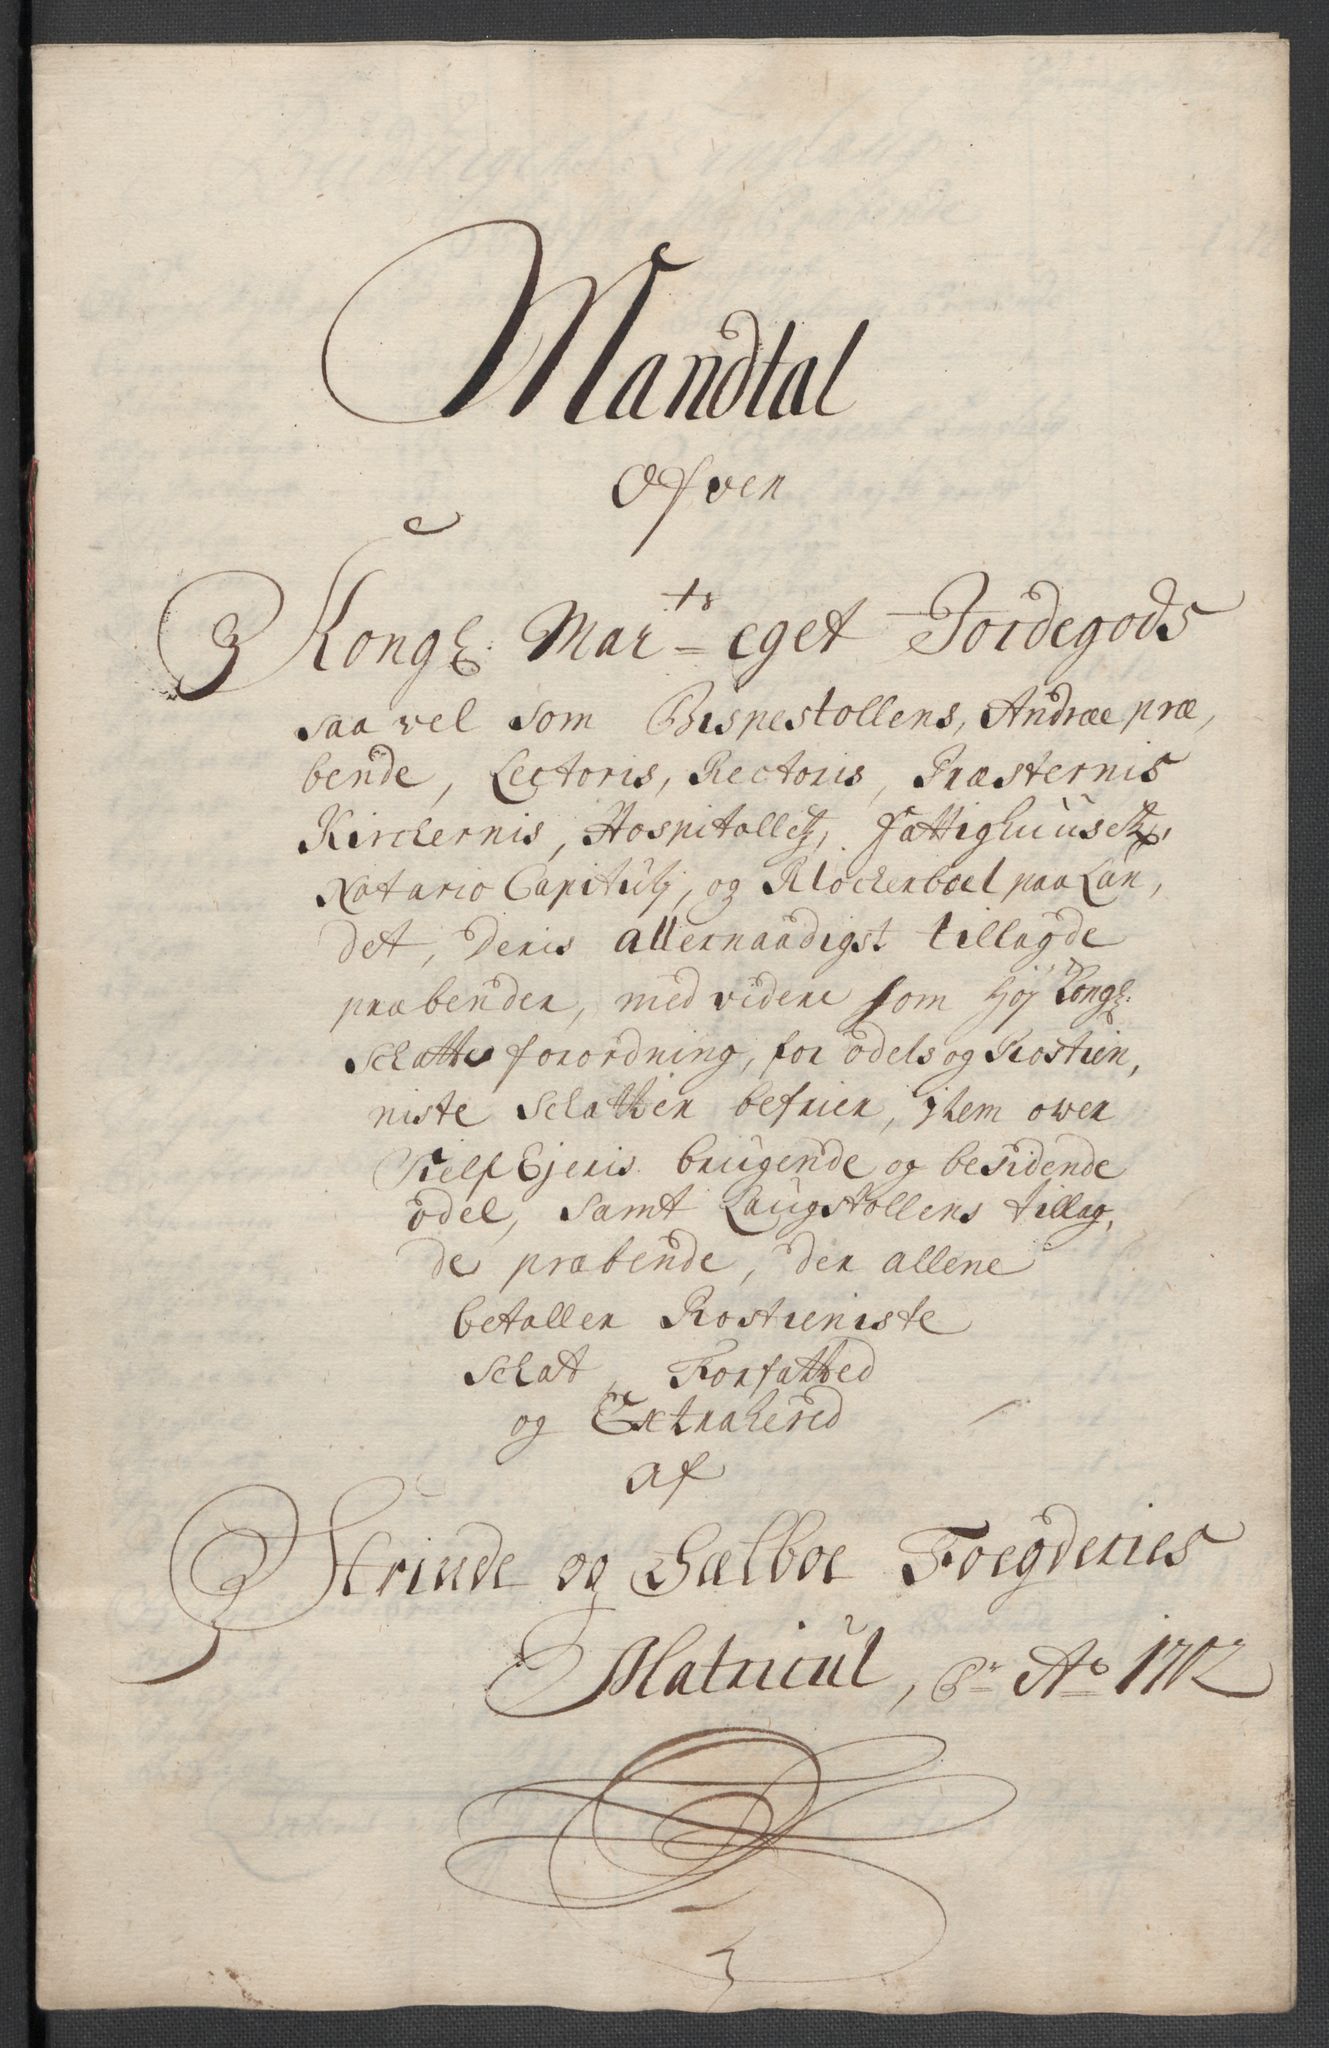 Mandtal
Ofver
Kongl: May:ts eget Jordegods
saa vel som Bispestollens, Andræ præ,
bende, Lectoris, Rectoris, Præsternis
Kirchernis, Hospitalletz, Fattighuusetz,
Notario Capitulj, og Klocherboel paa Lan,
det, Deris allernaadigst tillagde
præbender, med videre som høj Kongl:
Schatte forordning, for odels og Rostien,
niste Schatter befrier, jtem over
Sielf Ejeris brugende og besidende
odel, samt Laugstollens tillag,
de præbende, der allene
betaller Rostieniste
Schat, Forfatted
og Extrahered
af
Strinde og Sælboe Foegderies
Matricul, Pr Ao 1702